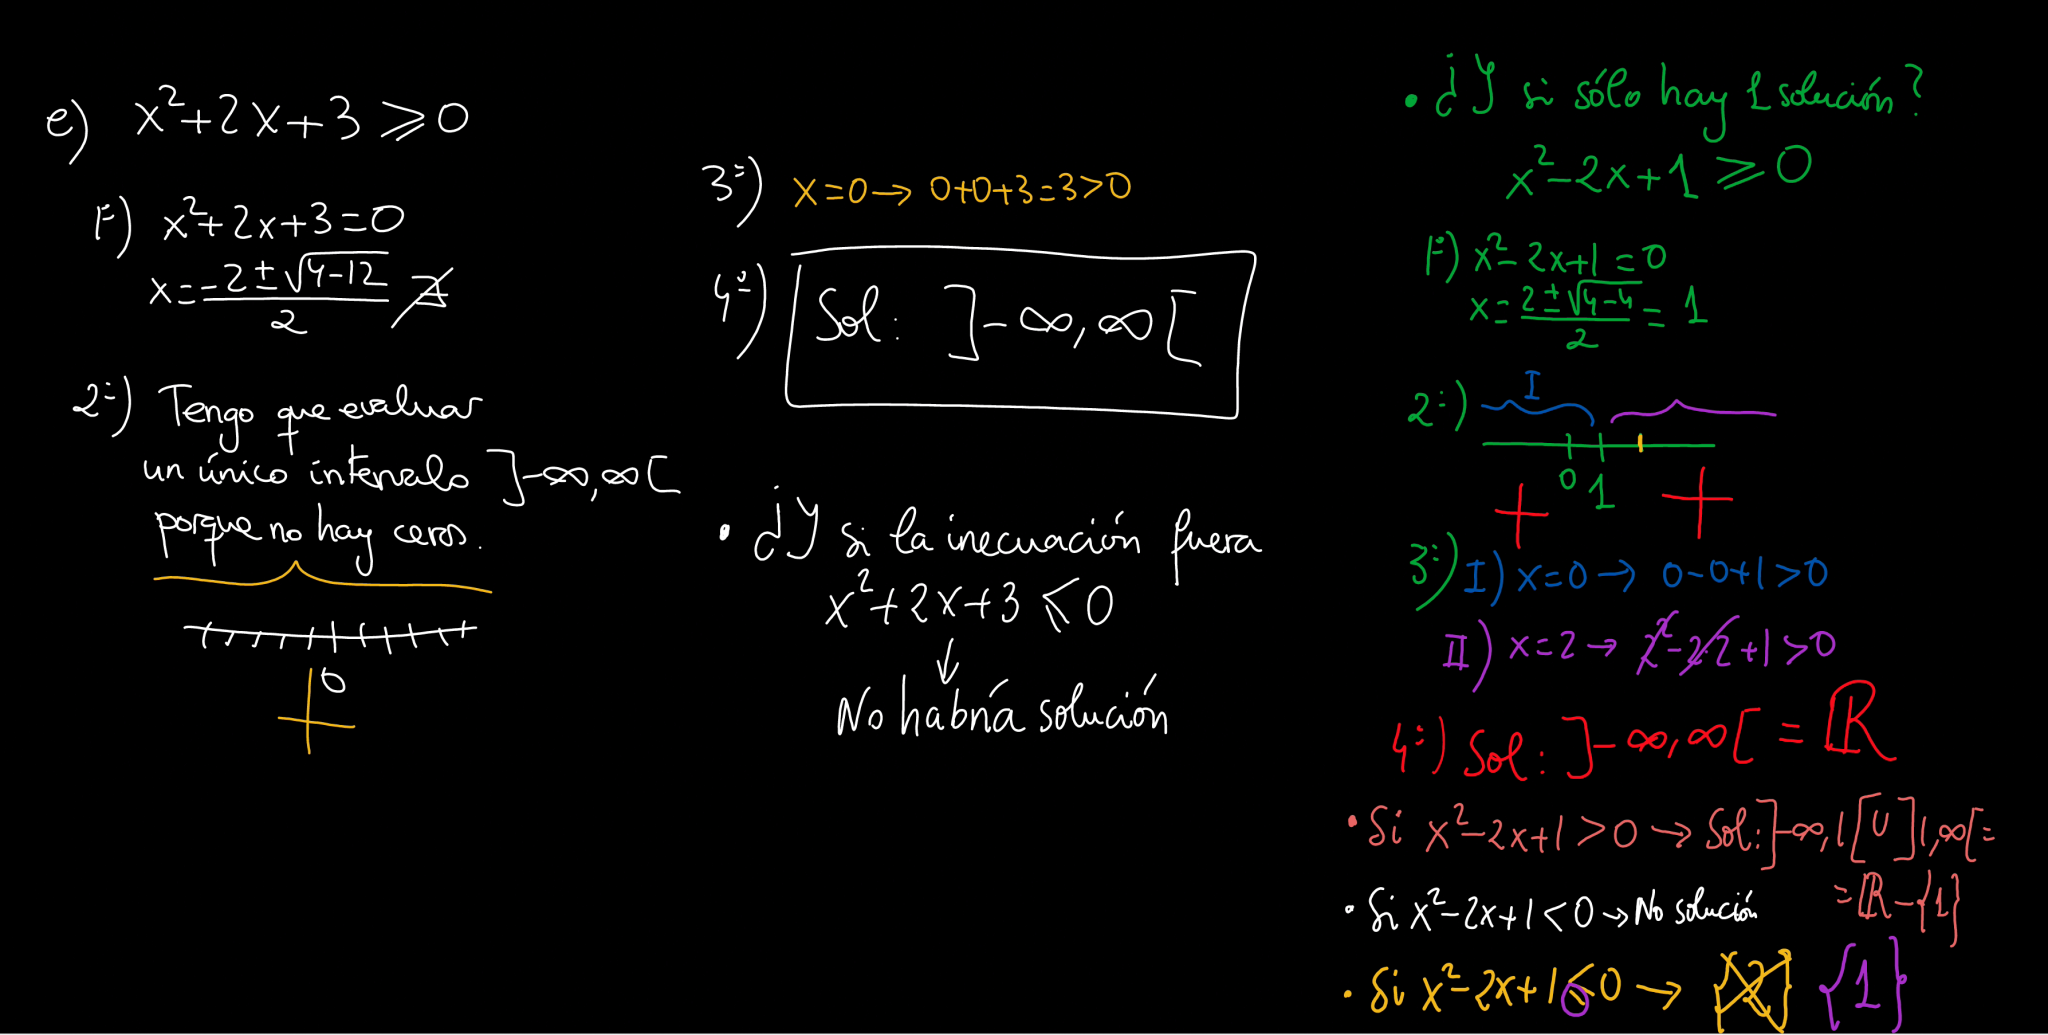 e) x²+2x+3 ⩾ 0
1º) x²+2x+3=0
x = (-2±√(4-12))/2 ∄
2º) Tengo que evaluar
un único intervalo ]-∞,∞[
porque no hay ceros.
0
+
3º) x=0 → 0+0+3=3>0
4º) Sol: ]-∞,∞[
• ¿Y si la inecuación fuera
x²+2x+3 ⩽ 0
↓
No habría solución
• ¿Y si sólo hay 1 solución?
x²-2x+1 ⩾ 0
1º) x²-2x+1=0
x = (2±√(4-4))/2 = 1
I
2º)
0 1
+ +
3º) I) x=0 → 0-0+1>0
II) x=2 → 2²-2·2+1>0
4º) Sol: ]-∞,∞[ = ℝ
• Si x²-2x+1>0 → Sol: ]-∞,1[ U ]1,∞[ =
= ℝ-{1}
• Si x²-2x+1<0 → No solución
• Si x²-2x+1⩽0 → {1}